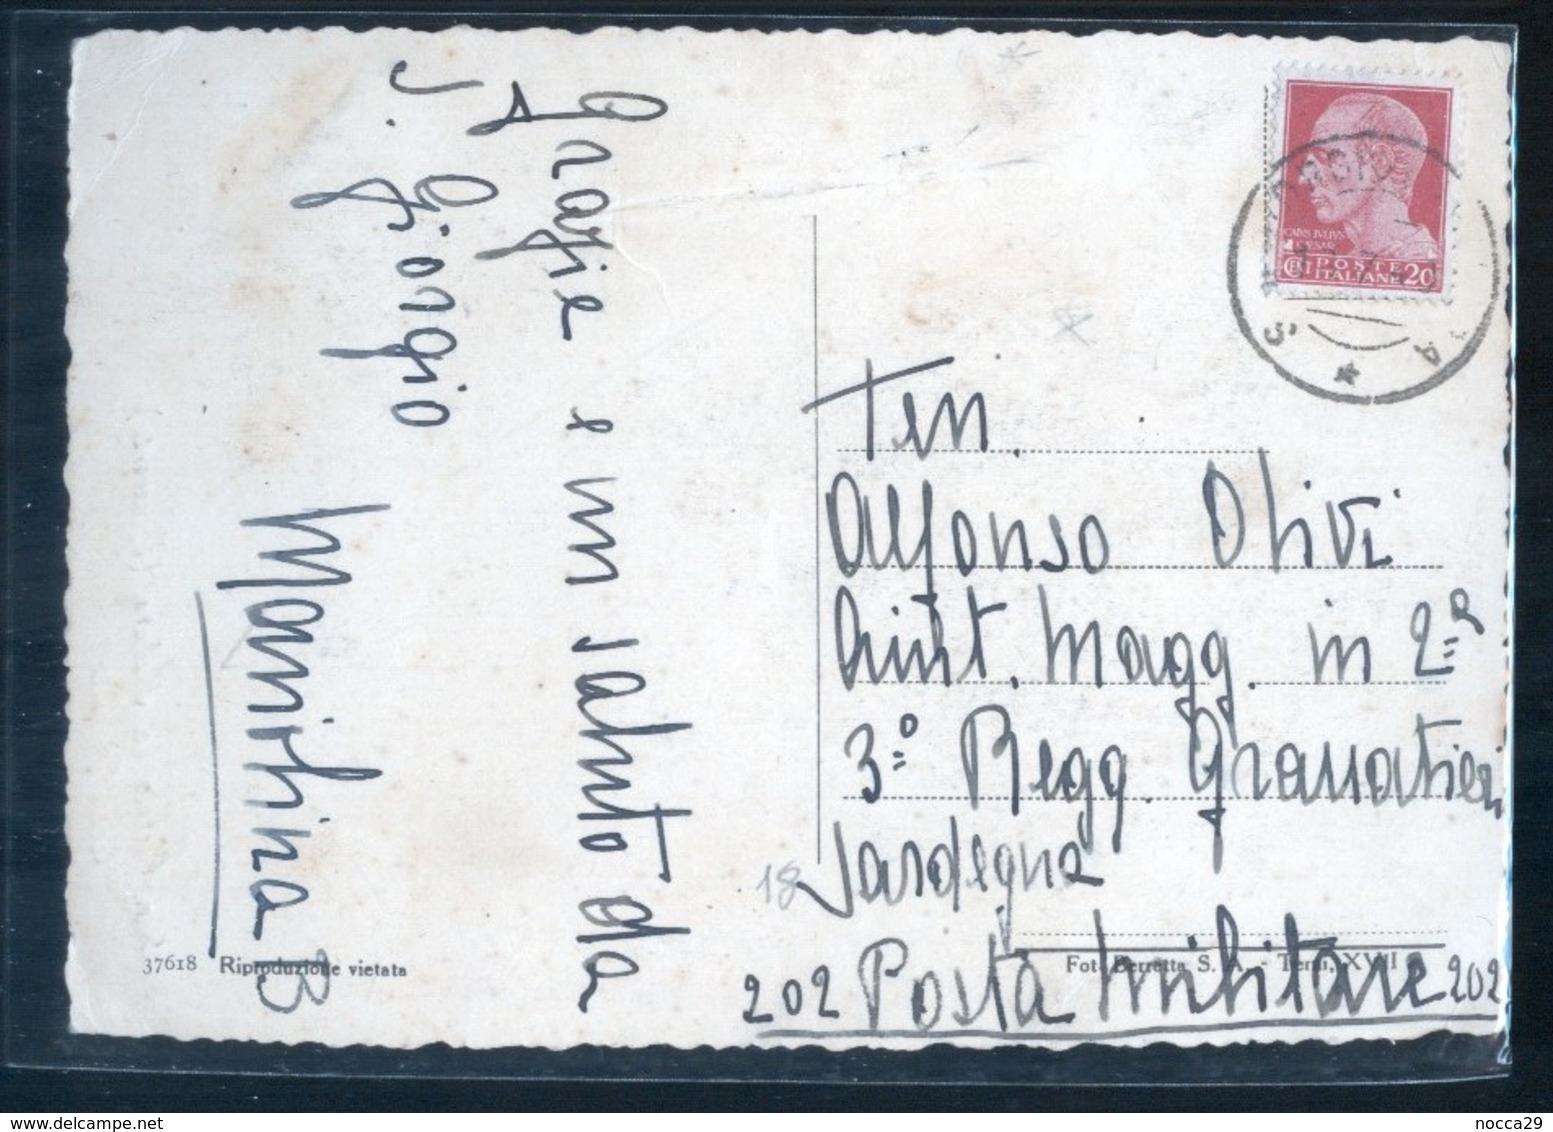 Grazie e un saluto da
S. Giorgio
CAIVS IVLIVS
CAESAR
POSTE
ITALIANE 20
Ten.
Alfonso Olivi
Aiut. Magg. in 2ª
3º Regg. Granatieri
Sardegna
18
202 Posta Militare 202
37618 Riproduzione vietata
Fot. Berretta S. A. - Terni, XVII
www.delcampe.net
nocca29